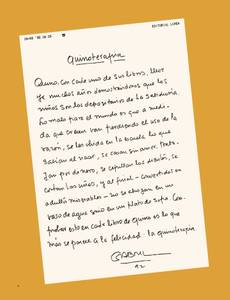 EDITORIAL LUMEN
Quinoterapia
Quino, con cada uno de sus libros, lleva
ya muchos años demostrándonos que los
niños son los depositarios de la sabiduría.
Lo malo para el mundo es que a medi-
da que crecen van perdiendo el uso de la
razón, se les olvida en la escuela lo que
sabían al nacer, se casan sin amor, traba-
jan por dinero, se cepillan los dientes, se
cortan las uñas, y al final - convertidos en
adultos miserables - no se ahogan en un
vaso de agua sino en un plato de sopa. Com-
probar esto en cada libro de Quino es lo que
más se parece a la felicidad: la quinoterapia
92